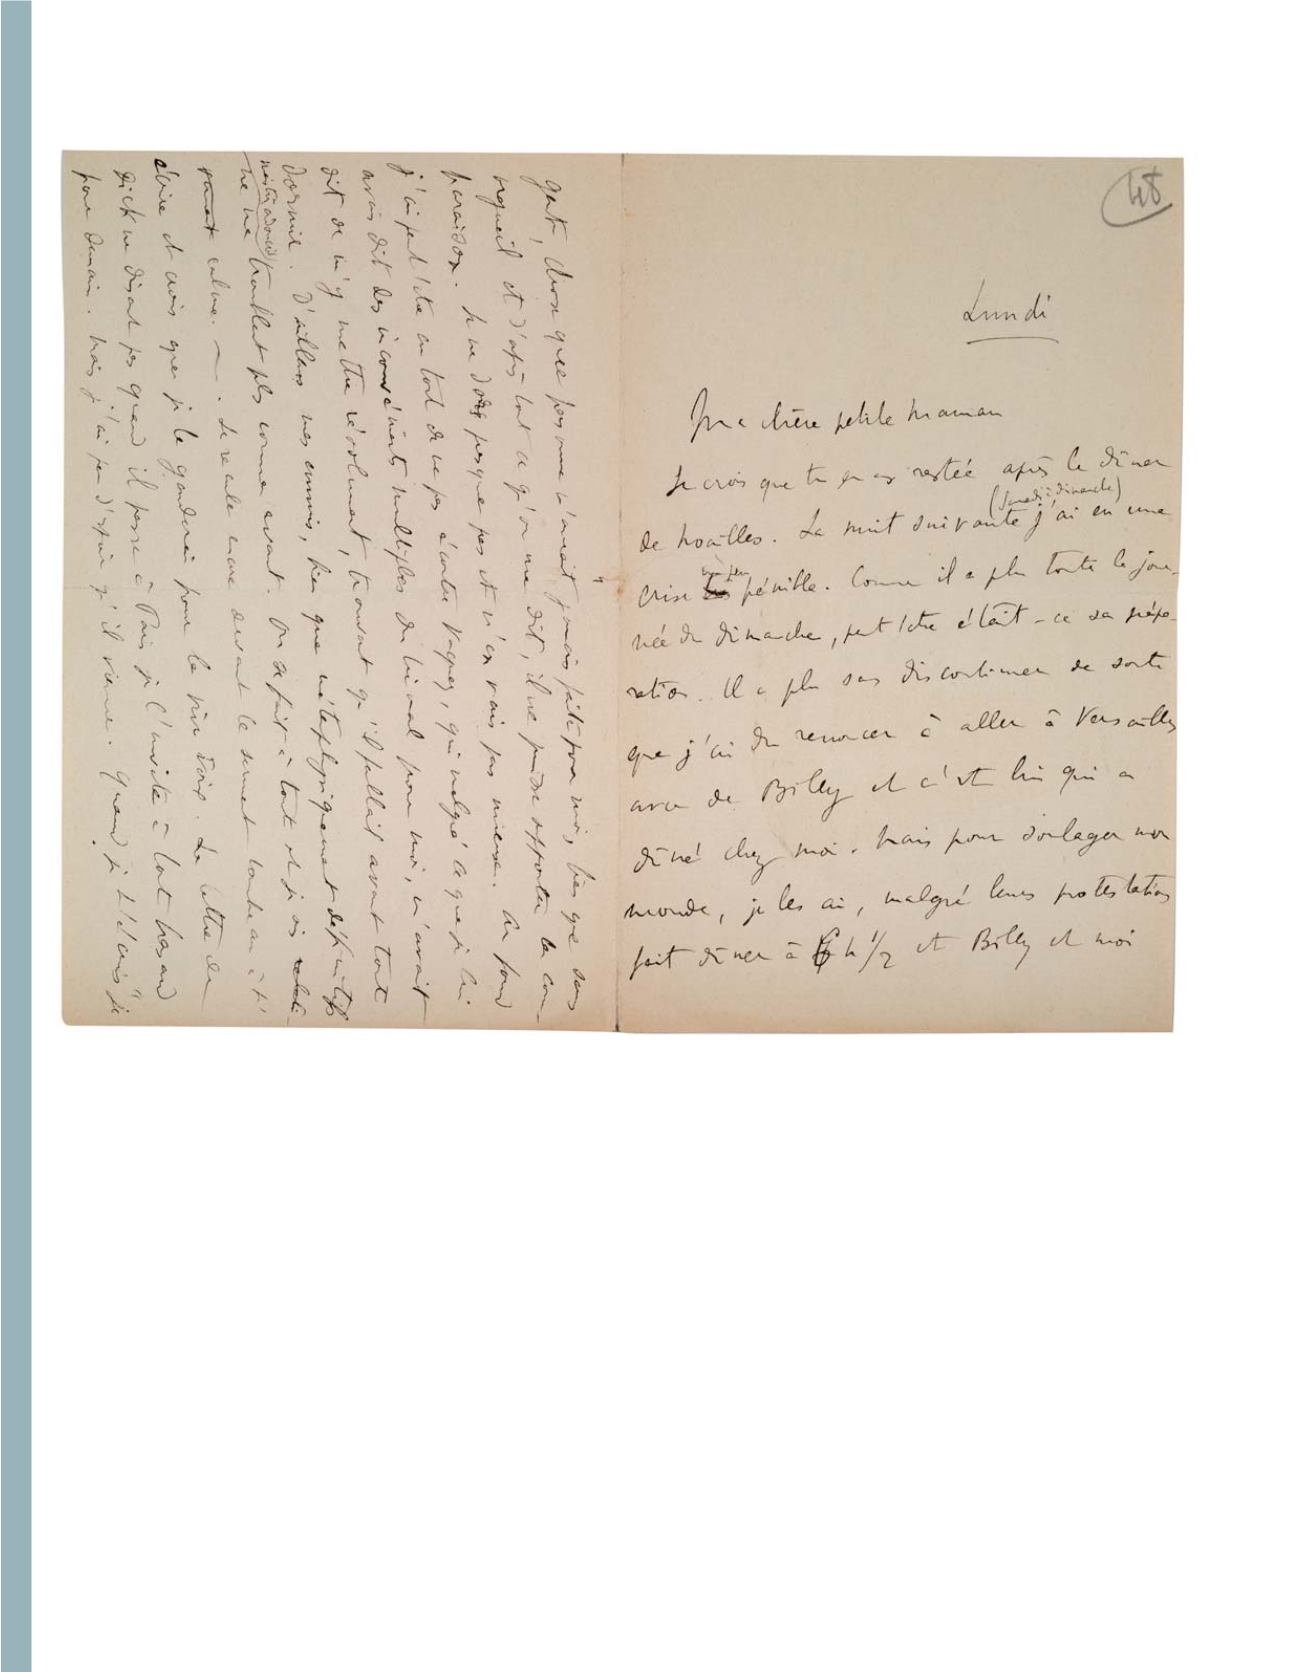 48
Lundi
Ma chère petite Maman
Je crois que tu en es restée après le dîner
(samedi à dimanche)
de Noailles. La nuit suivante j'ai eu une
un peu
crise pénible. Comme il a plu toute la jour-
née du dimanche, peut'être était-ce sa prépa-
ration. Il a plu sans discontinuer de sorte
que j'ai du renoncer à aller à Versailles
avec de Billy et c'est lui qui a
dîné chez moi. Mais pour soulager mon
monde, je les ai, malgré leurs protestations
fait dîner à 6 h 1/2 et Billy et moi
gents, chose que personne n'aurait jamais faite pour moi, bien que sans
orgueil et d'après tout ce qu'on me dit, il ne puisse supporter la com-
paraison. Je ne dors presque pas et n'en vais pas mieux. Au fond
j'ai peut'être eu tort de ne pas écouter Vaquez, qui malgré ce que je lui
avais dit des inconvénients multiples du trional pour moi, m'avait
dit de m'y mettre résolument, trouvant qu'il fallait avant tout
dormir. D'ailleurs mes ennuis, bien que métaphysiquement définitifs
ne me troublent plus comme avant. On se fait à tout et je suis relati-
vement calme. — . Je recule encore devant le
écrire et crois que je le garderai pour la vive voix. La lettre de
Dick ne disant pas quand il passe à Paris je l'invite à tout hasard
pour demain. Mais j'ai peu d'espoir qu'il vienne. Quand je t'écris "je